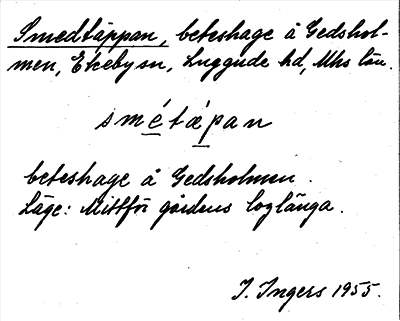 Smedtäppan, beteshage å Gedshol-
men, Ekeby sn, Luggude hd, Mhs län.
smétæpan
beteshage å Gedsholmen.
Läge: Mittför gårdens loglänga.
I. Ingers 1955.